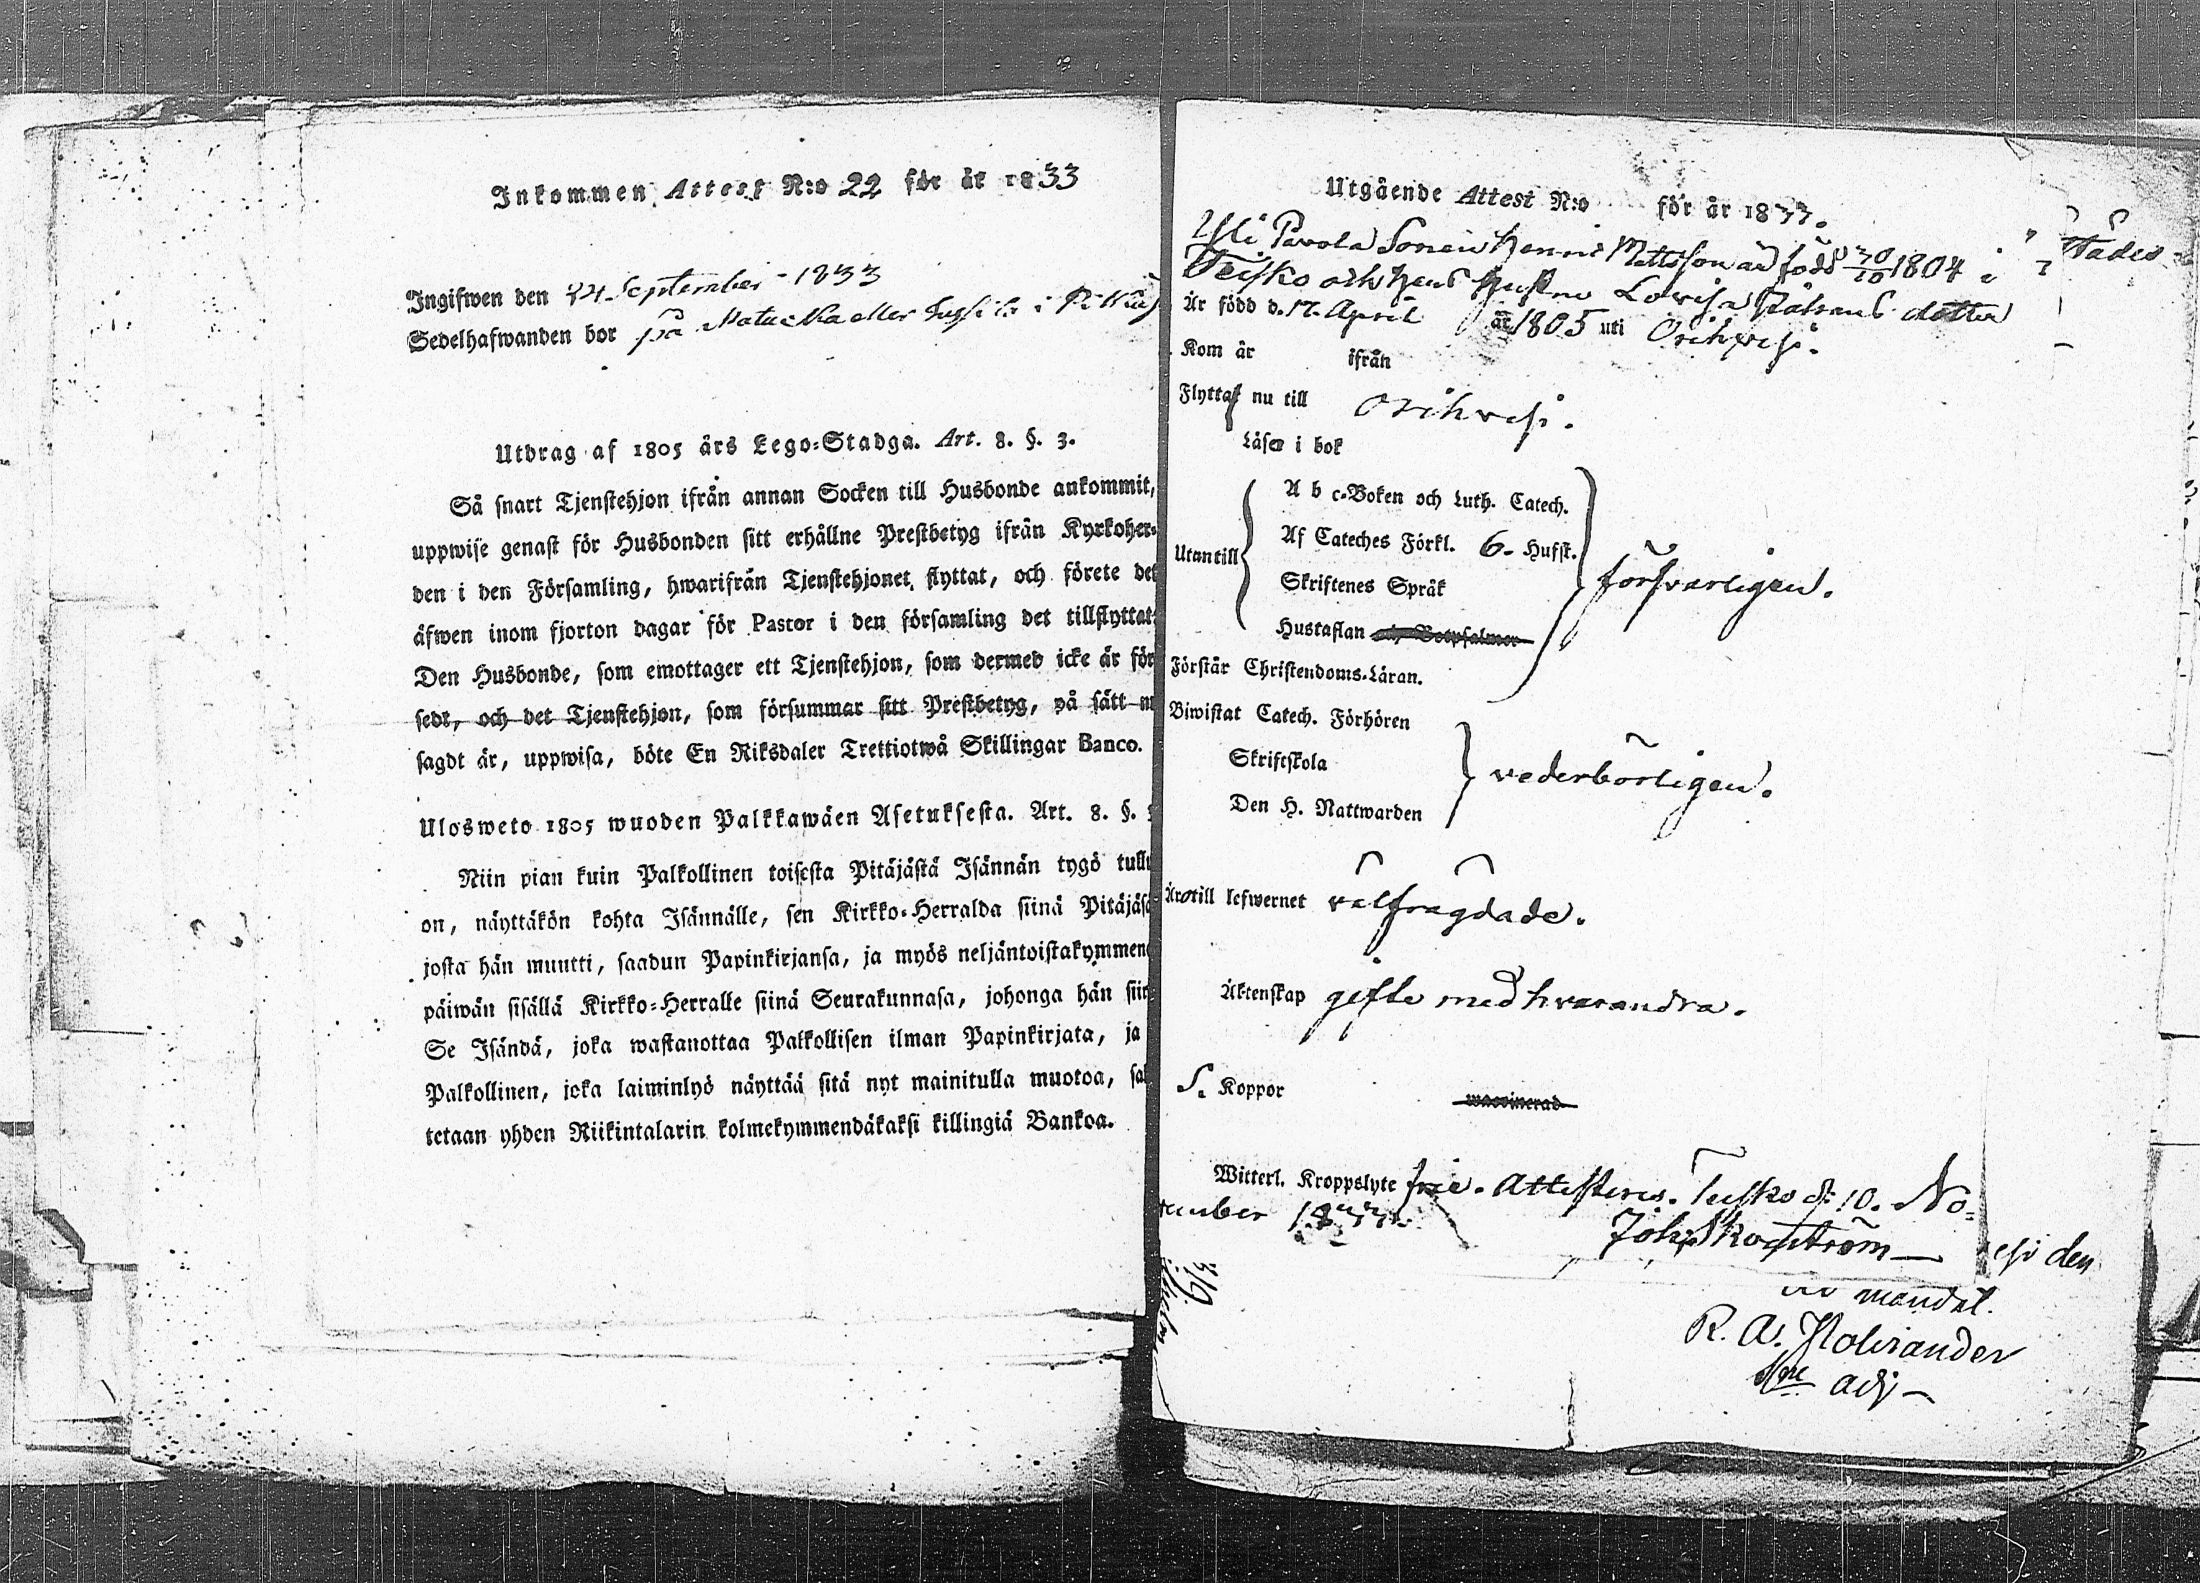 Inkommen Attest N:o 22 för år 1833
Ingifwen den 24 September 1833
Sedelhafwanden bor på eller i
Utdrag af 1805 års Lego-Stadga. Art. 8. §. 3.
Så snart Tjenstehjon ifrån annan Socken till Husbonde ankommit,
uppwise genast för Husbonden sitt erhållne Prestbetyg ifrån Kyrkoher-
den i den Församling, hwarifrån Tjenstehjonet flyttat, och förete det
äfwen inom fjorton dagar för Pastor i den församling det tillflyttat
Den Husbonde, som emottager ett Tjenstehjon, som dermed icke är för
sedt, och det Tjenstehjon, som försummar sitt Prestbetyg, på sätt n
sagdt är, uppwisa, böte En Riksdaler Trettiotwå Skillingar Banco.
Ulosweto 1805 wuoden Palkkawäen Asetuksesta. Art. 8. §. 3
Niin pian kuin Palkollinen toisesta Pitäjästä Isännän tygö tullu
on, näyttäkön kohta Isännälle, sen Kirkko-Herralda siinä Pitäjäs
josta hän muutti, saadun Papinkirjansa, ja myös neljäntoistakymmen
päiwän sisällä Kirkko-Herralle siinä Seurakunnasa, johonga hän siir
Se Isändä, joka wastanottaa Palkollisen ilman Papinkirjata, ja
Palkollinen, joka laiminlyö näyttää sitä nyt mainitulla muotoa, sak
tetaan yhden Riikintalarin kolmekymmendäkaksi killingiä Bankoa.
Utgående Attest N:o för år 1833.
Pavola Sonen Henric Mattsson är född 30/10 1804 i
Teisko och hans hustru Lovisa Johans dotter
Är född d. 17. April år 1805 uti Orihvesi.
Kom år ifrån
Flyttas nu till Orihvesi.
Läser i bok
Utantill
A b c-Boken och Luth. Catech.
Af Cateches Förkl. 6. Hufst.
Skriftenes Språk
Hustaflan och Botpsalmer
försvarligen.
Förstår Christendoms-Läran.
Biwistat Catech. Förhören
Skriftskola
Den H. Nattwarden
vederbörligen.
Äro till lefwernet välfrägdade.
Äktenskap gifte med hvarandra.
S. Koppor waccinerad
Witterl. Kroppslyte frie. Attesteras. Teisko d: 10. No=
vember 1833.
Joh. Skogström
esi den
mandat.
R. A. Holsrander
adj